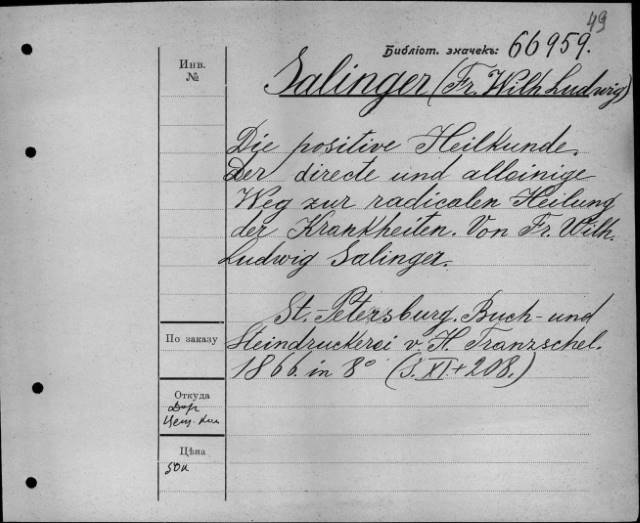 49
Библіот. значекъ: 66959.
Инв.
№
Salinger (Fr. Wilh. Ludwig)
Die positive Heilkunde.
Der directe und alleinige
Weg zur radicalen Heilung
der Krankheiten. Von Fr. Wilh.
Ludwig Salinger.
St. Petersburg. Buch- und
Steindruckerei v. H. Tranzschel.
1866. in 8° (S. XI + 208.)
По заказу
Откуда
Цѣна
50к